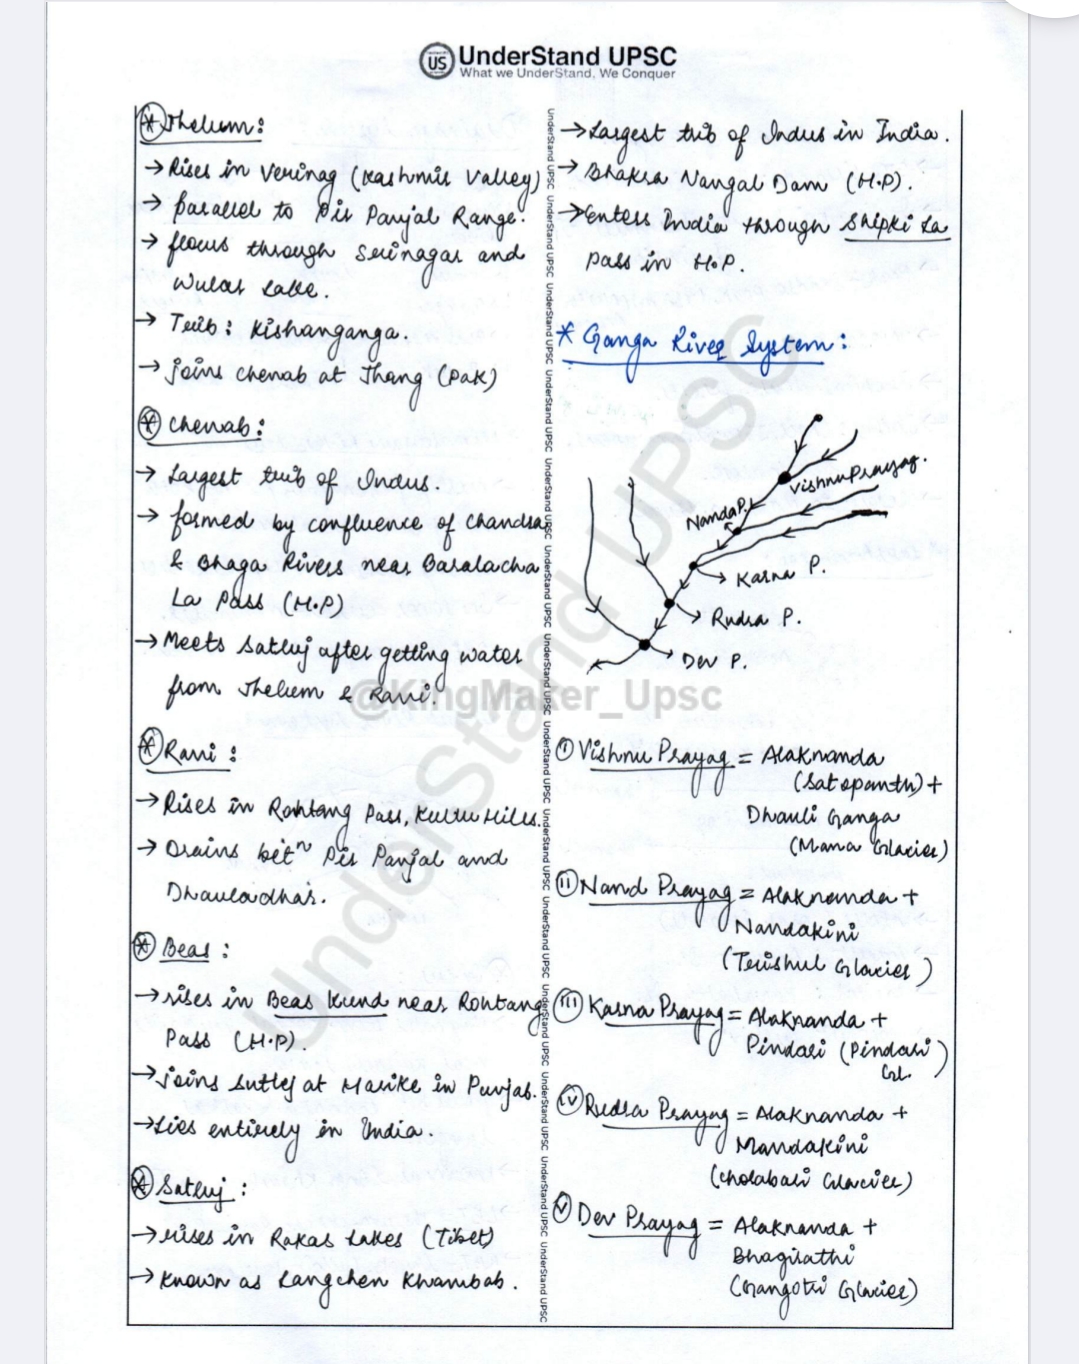 US UnderStand UPSC
What we UnderStand, We Conquer
* Jhelum:
→ Rises in Verinag (Kashmir Valley)
→ parallel to Pir Panjal Range.
→ flows through Srinagar and
Wular Lake.
→ Trib: Kishanganga.
→ joins chenab at Jhang (Pak)
* Chenab:
→ Largest trib of Indus.
→ formed by confluence of Chandra
& Bhaga Rivers near Baralacha
La Pass (H.P)
→ Meets Satluj after getting water
from Jhelum & Ravi.
* Ravi:
→ Rises in Rohtang Pass, Kullu Hills.
→ Drains betⁿ Pir Panjal and
Dhauladhar.
* Beas:
→ rises in Beas Kund near Rohtang
Pass (H.P).
→ joins Sutlej at Harike in Punjab.
→ Lies entirely in India.
* Satluj:
→ rises in Rakas Lakes (Tibet)
→ Known as Langchen Khambab.
→ Largest trib of Indus in India.
→ Bhakra Nangal Dam (H.P).
→ enters India through Shipki La
Pass in H.P.
* Ganga River System:
Vishnu Prayag.
Nanda P.
→ Karna P.
→ Rudra P.
→ Dev P.
@KingMaker_Upsc
(i) Vishnu Prayag = Alaknanda
(Satopanth) +
Dhauli Ganga
(Mana Glacier)
(ii) Nand Prayag = Alaknanda +
Nandakini
(Trishul Glacier)
(iii) Karna Prayag = Alaknanda +
Pindari (Pindari
GL.)
(iv) Rudra Prayag = Alaknanda +
Mandakini
(Cholabari Glacier)
(v) Dev Prayag = Alaknanda +
Bhagirathi
(Gangotri Glacier)
UnderStand UPSC
UnderStand UPSC UnderStand UPSC UnderStand UPSC UnderStand UPSC UnderStand UPSC UnderStand UPSC UnderStand UPSC UnderStand UPSC UnderStand UPSC UnderStand UPSC UnderStand UPSC UnderStand UPSC UnderStand UPSC UnderStand UPSC